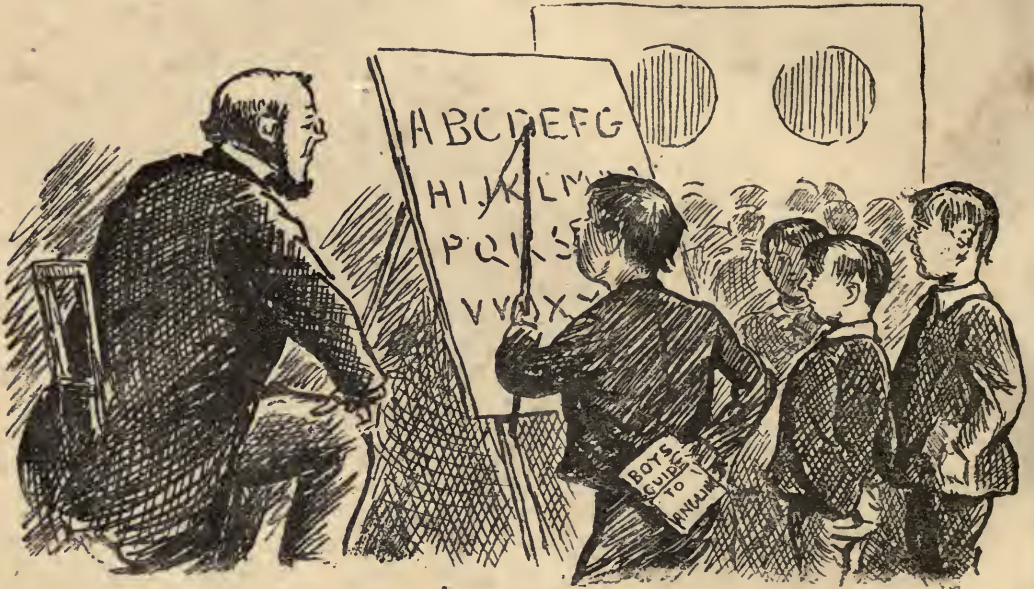 ABCDEFG
HIJKLM
PQRS
VWX
BOYS
GUIDE
TO